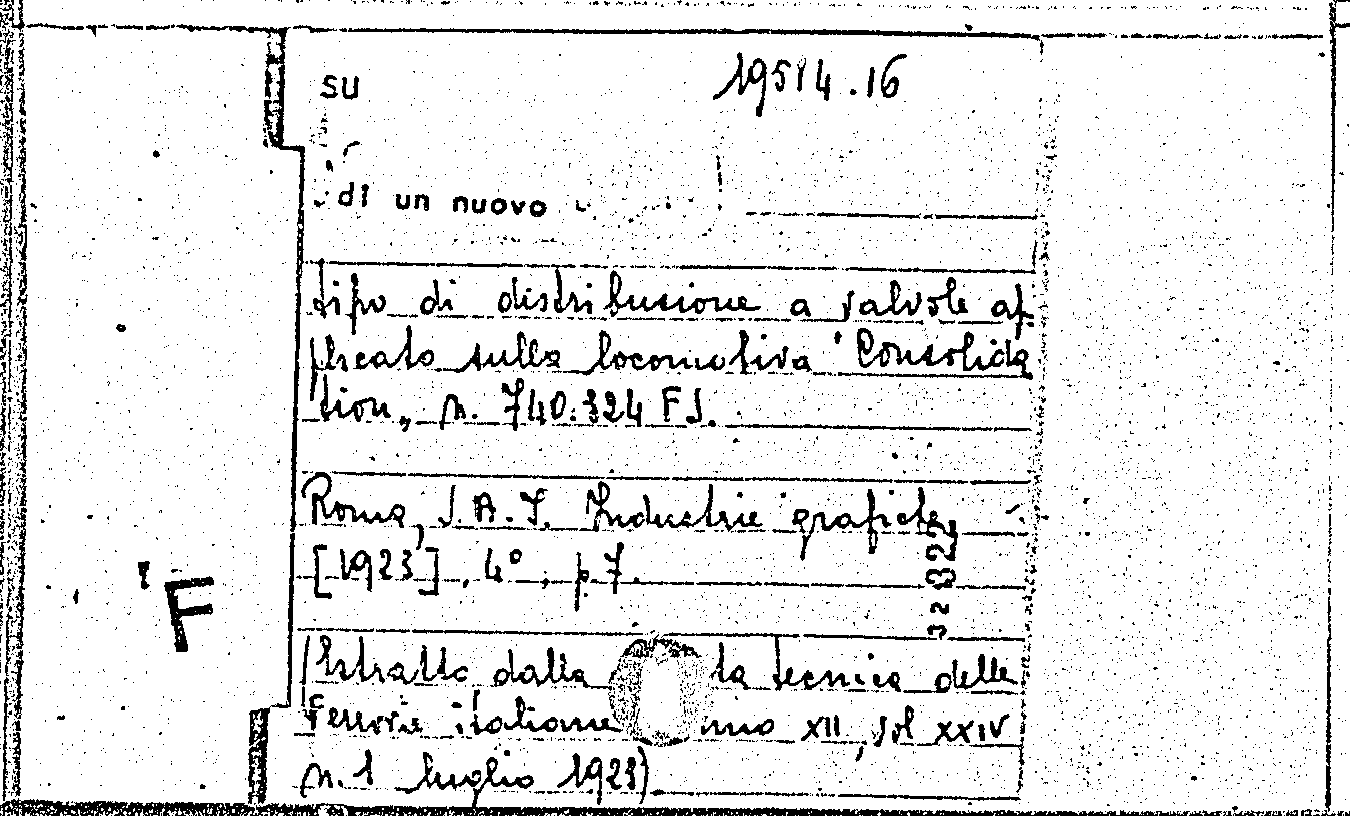 su 19514.16
di un nuovo
tipo di distribuzione a valvole ap
plicato sulla locomotiva "Consolida
tion„ n. 740.324 FS.
Roma, S.A.I. Industrie grafiche
[1923], 4°, p 7.
322
(Estratto dalla ta tecnica delle
Ferrovie italiane nno XII, vol XXIV
n. 1 luglio 1923)
F